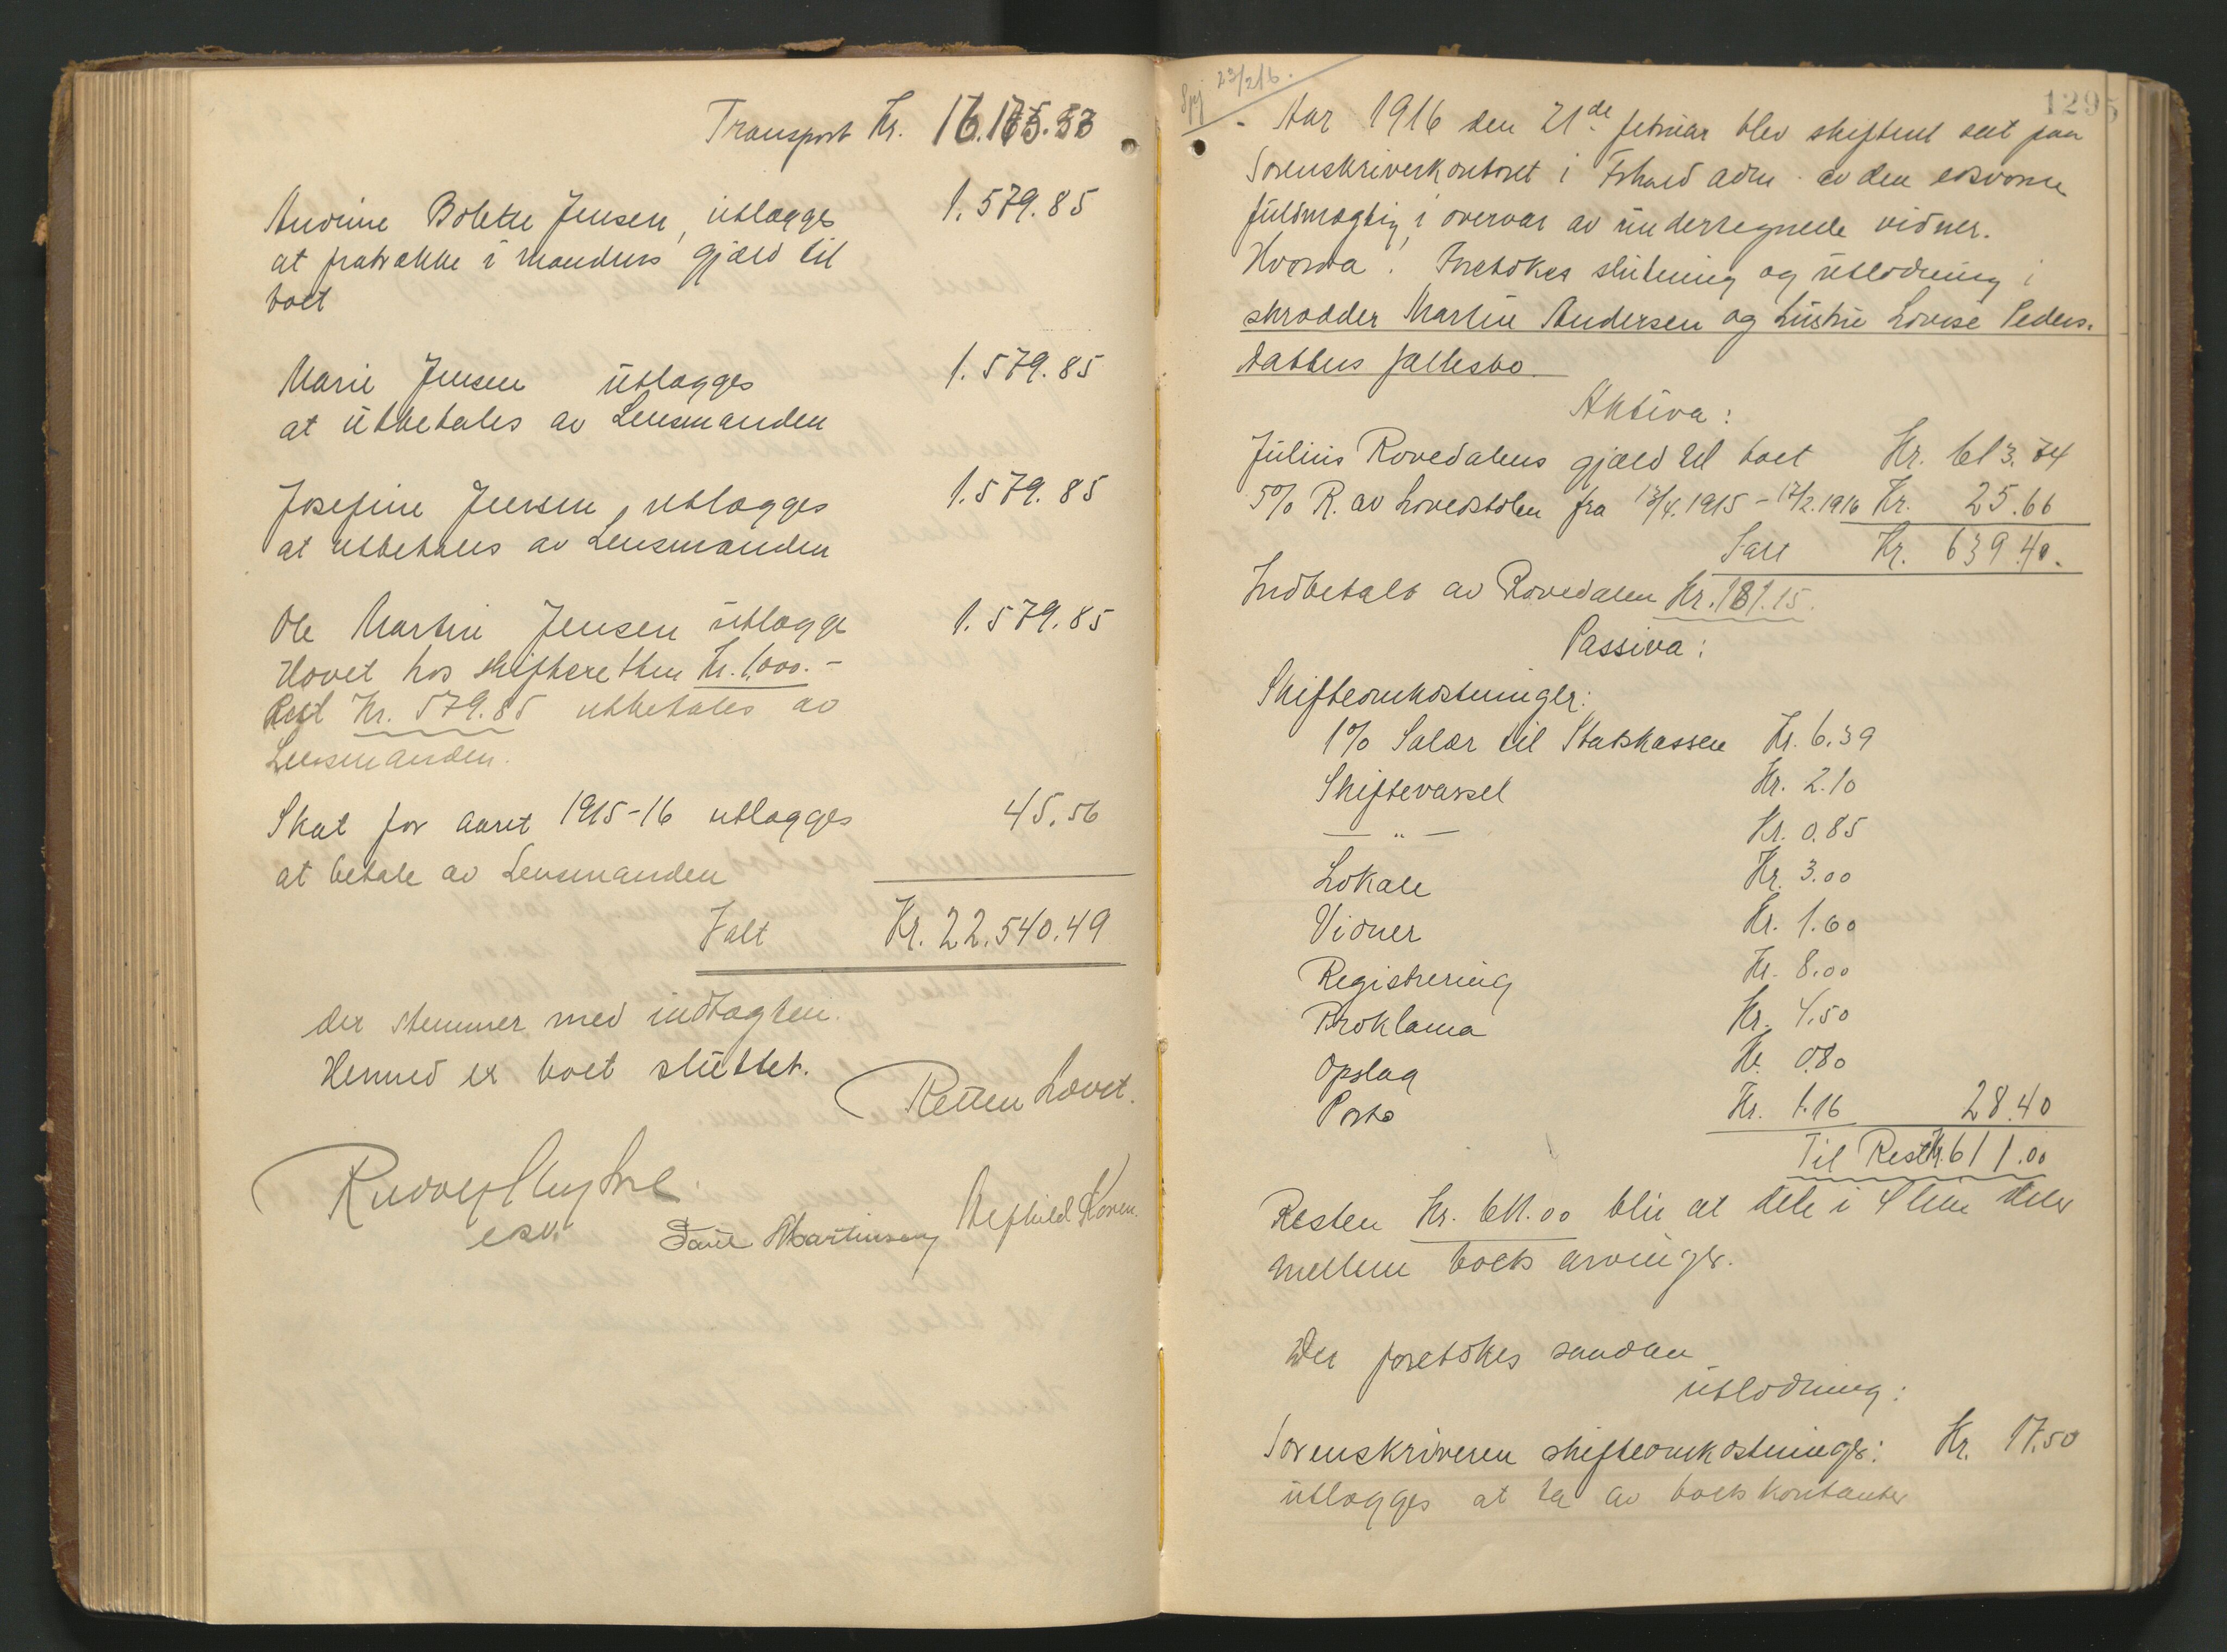 Transport Kr. 16.175.53
Andrine Bolette Jensen, utlægges 1.579.85
at fratrække i mandens gjæld til
boet
Marie Jensen utlægges 1.579.85
at utbetales av Lensmanden
Josefine Jensen, utlægges 1.579.85
at utbetales av Lensmanden
Ole Martin Jensen utlægge 1.579.85
Hovet hos skifteretten Kr. 1.000.-
Rest Kr. 579.85 utbetales av
Lensmanden.
Skat for aaret 1915-16 utlægges 45.56
at betale av Lensmanden
Ialt Kr. 22.540.49
der stemmer med indtægten.
Hermed er boet sluttet.
Retten hævet.
esv.
Paul Martinsen
129
23/2 16.
Aar 1916 den 21de februar blev skifteret sat paa
Sorenskriverkontoret i Fhald adm. av den edsvorne
fuldmægtig, i overvær av undertegnede vidner.
Hvorda: Foretokes slutning og utlodning i
skrædder Martin Andersen og hustru Lovise Peders.
datters fællesbo
Aktiva:
Julius Rovedalens gjæld til boet Kr. 613.74
5% R. av hovedstolen fra 17/4.1915 - 17/2.1916 Kr. 25.66
Ialt Kr. 639.40.
Indbetalt av Rovedalen Kr. 181.15.
Passiva:
Skifteomkostninger:
1% Salær til Statskassen Kr. 6.39
Skiftevarsel Kr. 2.10
— " — Kr. 0.85
Lokale Kr. 3.00
Vidner Kr. 1.60
Registrering Kr. 8.00
Proklama Kr. 4.50
Opslag Kr. 0.80
Porto Kr. 1.16 28.40
Til Rest Kr. 611.00
Resten Kr. 611.00 blir at dele i dele
mellem boets arvinger.
Der foretokes saadan
utlodning:
Sorenskriveren skifteomkostninger: Kr. 17.50
utlægges at ta av boets kontanter